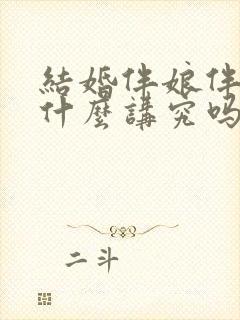 結婚伴娘伴
什麼講究吗
二斗